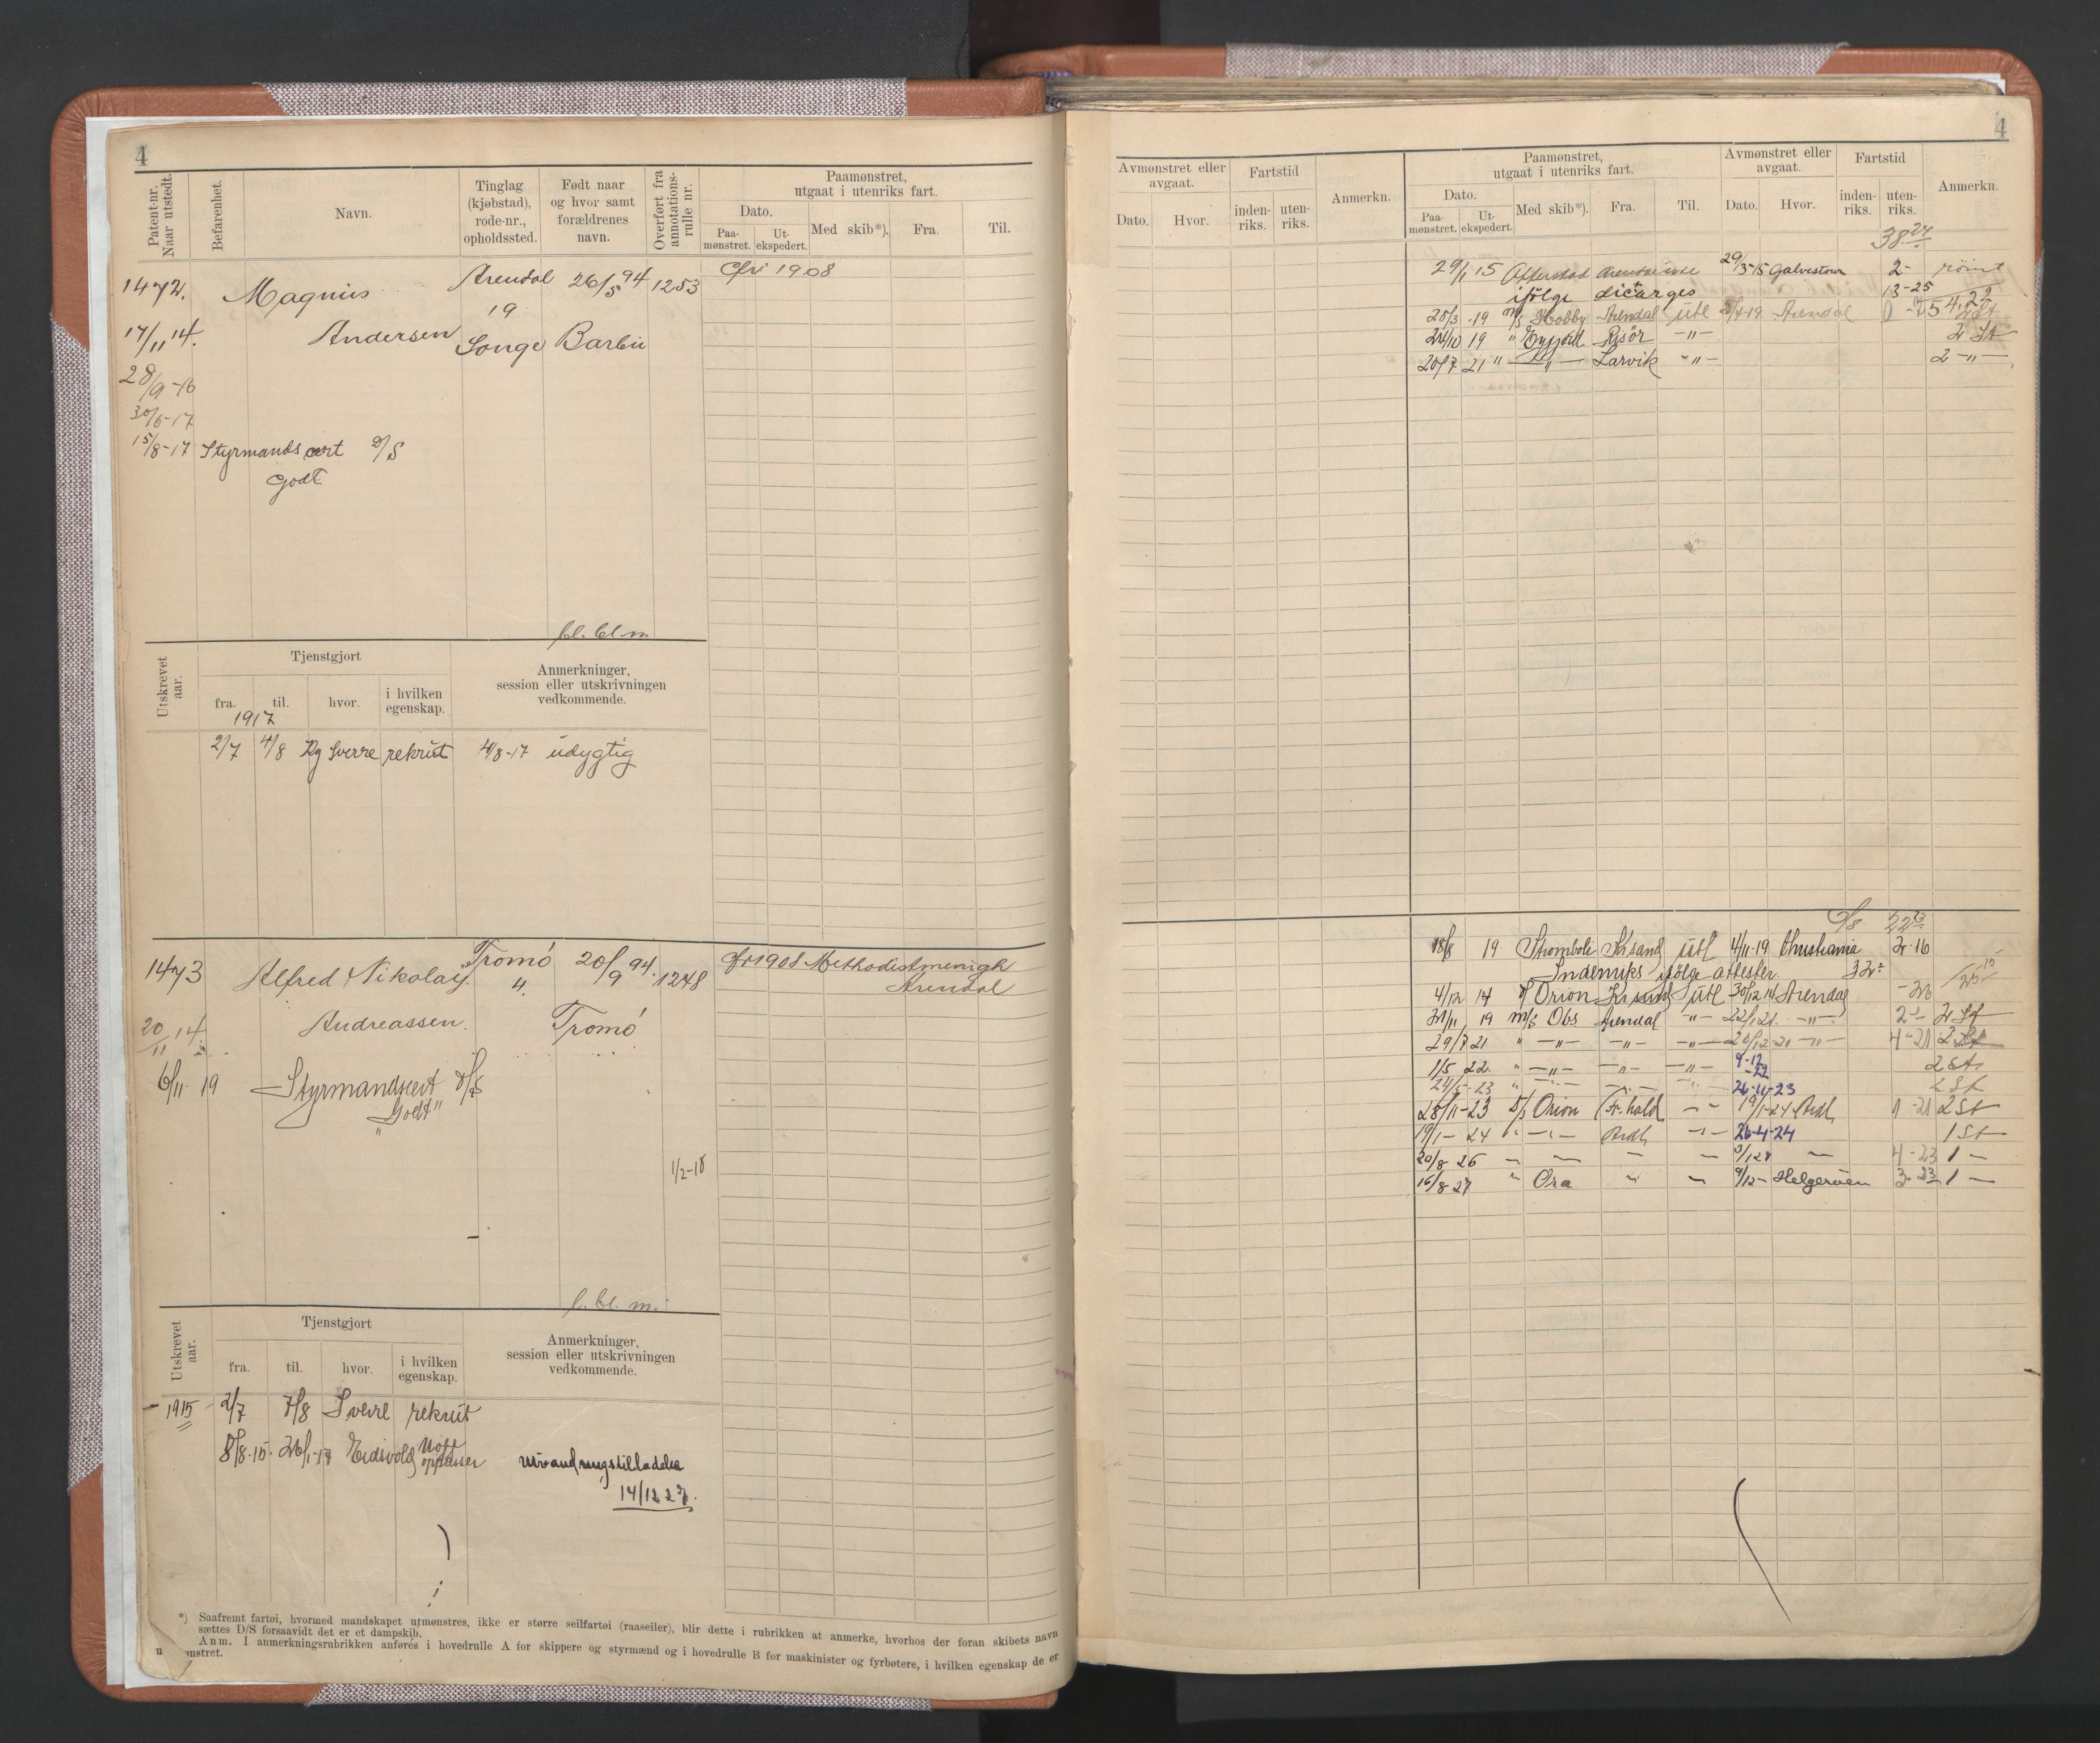 4
Patent-nr.
Naar utstedt.
Befarenhet.
Navn.
Tinglag
(kjøbstad),
rode-nr.,
opholdssted.
Født naar
og hvor samt
forældrenes
navn.
Overført fra
annotations-
rulle nr.
Paamønstret,
utgaat i utenriks fart.
Dato.
Paa-
mønstret.
Ut-
ekspedert.
Med skib*).
Fra.
Til.
1472.
Magnus
Arendal
26/5 94
1253
Cfr. 1908
19
17/11 14.
Andersen
Songe
Barbu
28/9-16
30/6-17
15/8-17 Styrmandscert D/S
Godt
bl. bl. m
Utskrevet
aar.
Tjenstgjort
fra.
til.
hvor.
i hvilken
egenskap.
Anmerkninger,
session eller utskrivningen
vedkommende.
1917
2/7 4/8 Kg Sverre rekrut 4/8-17 udygtig
1473
Alfred Nikolay
Tromö
4.
20/9 94.
1248
Cfr 1908 Methodistmenigh
Arendal
20/11 14.
Andreassen.
Tromö
6/11 19
Styrmandscert D/S
"Godt"
1/2-18
l. bl. m.
Utskrevet
aar.
Tjenstgjort
fra.
til.
hvor.
i hvilken
egenskap.
Anmerkninger,
session eller utskrivningen
vedkommende.
1915 2/7 7/8 Sverre rekrut
8/8-15. 26/1-17 Eidsvold Uoff
oppasser
utvandringstilladelse
14/12 27.
*) Saafremt fartøi, hvormed mandskapet utmønstres, ikke er større seilfartøi (raaseiler), blir dette i rubrikken at anmerke, hvorhos der foran skibets navn
sættes D/S forsaavidt det er et dampskib.
Anm. I anmerkningsrubrikken anføres i hovedrulle A for skippere og styrmænd og i hovedrulle B for maskinister og fyrbøtere, i hvilken egenskap de er
u ønstret.
4
Avmønstret eller
avgaat.
Dato.
Hvor.
Fartstid
inden-
riks.
uten-
riks.
Anmerkn.
Paamønstret,
utgaat i utenriks fart.
Dato.
Paa-
mønstret.
Ut-
ekspedert.
Med skib*).
Fra.
Til.
Avmønstret eller
avgaat.
Dato.
Hvor.
Fartstid
inden-
riks.
uten-
riks.
Anmerkn.
38.27
29/1 15 29/3-15 Galvestown 2- römt
ifölge dicarges 13-25
54.22
20/3 .19 m/s Hobby Arendal utl 5/4-19 Arendal
24/10 19 " Risör -"- 2 St
20/7 21 " -"- Larvik -"- 2 -"-
D/S 22 23
18/8 19 Stromboli Krsand utl 4/11-19 Christiania 2-16
Indenriks ifölge attester 32
4/12 14 D/ Orion utl 30/12 14 Arendal -26
19 m/s Obs Arendal -"- 22/1 21. -"- 2 St
29/7 21 " -"- -"- -"- 20/12 21 -"- 4-21 2 St
1/5 22. " -"- -"- -"- 9-12-22 2 St
24/5-23 " 26-11-23 2 St
28/11-23 D/S Orion Fr.hald -"- 19/1-24 Ardl 1-21 2 St
19/1-24 " -"- Ardl -"- 26-4-24 1 St
20/8 26 — — — — — 4-23 1 —
16/8 27 " Ora " — 9/12- Helgeröen 3-23 1 —